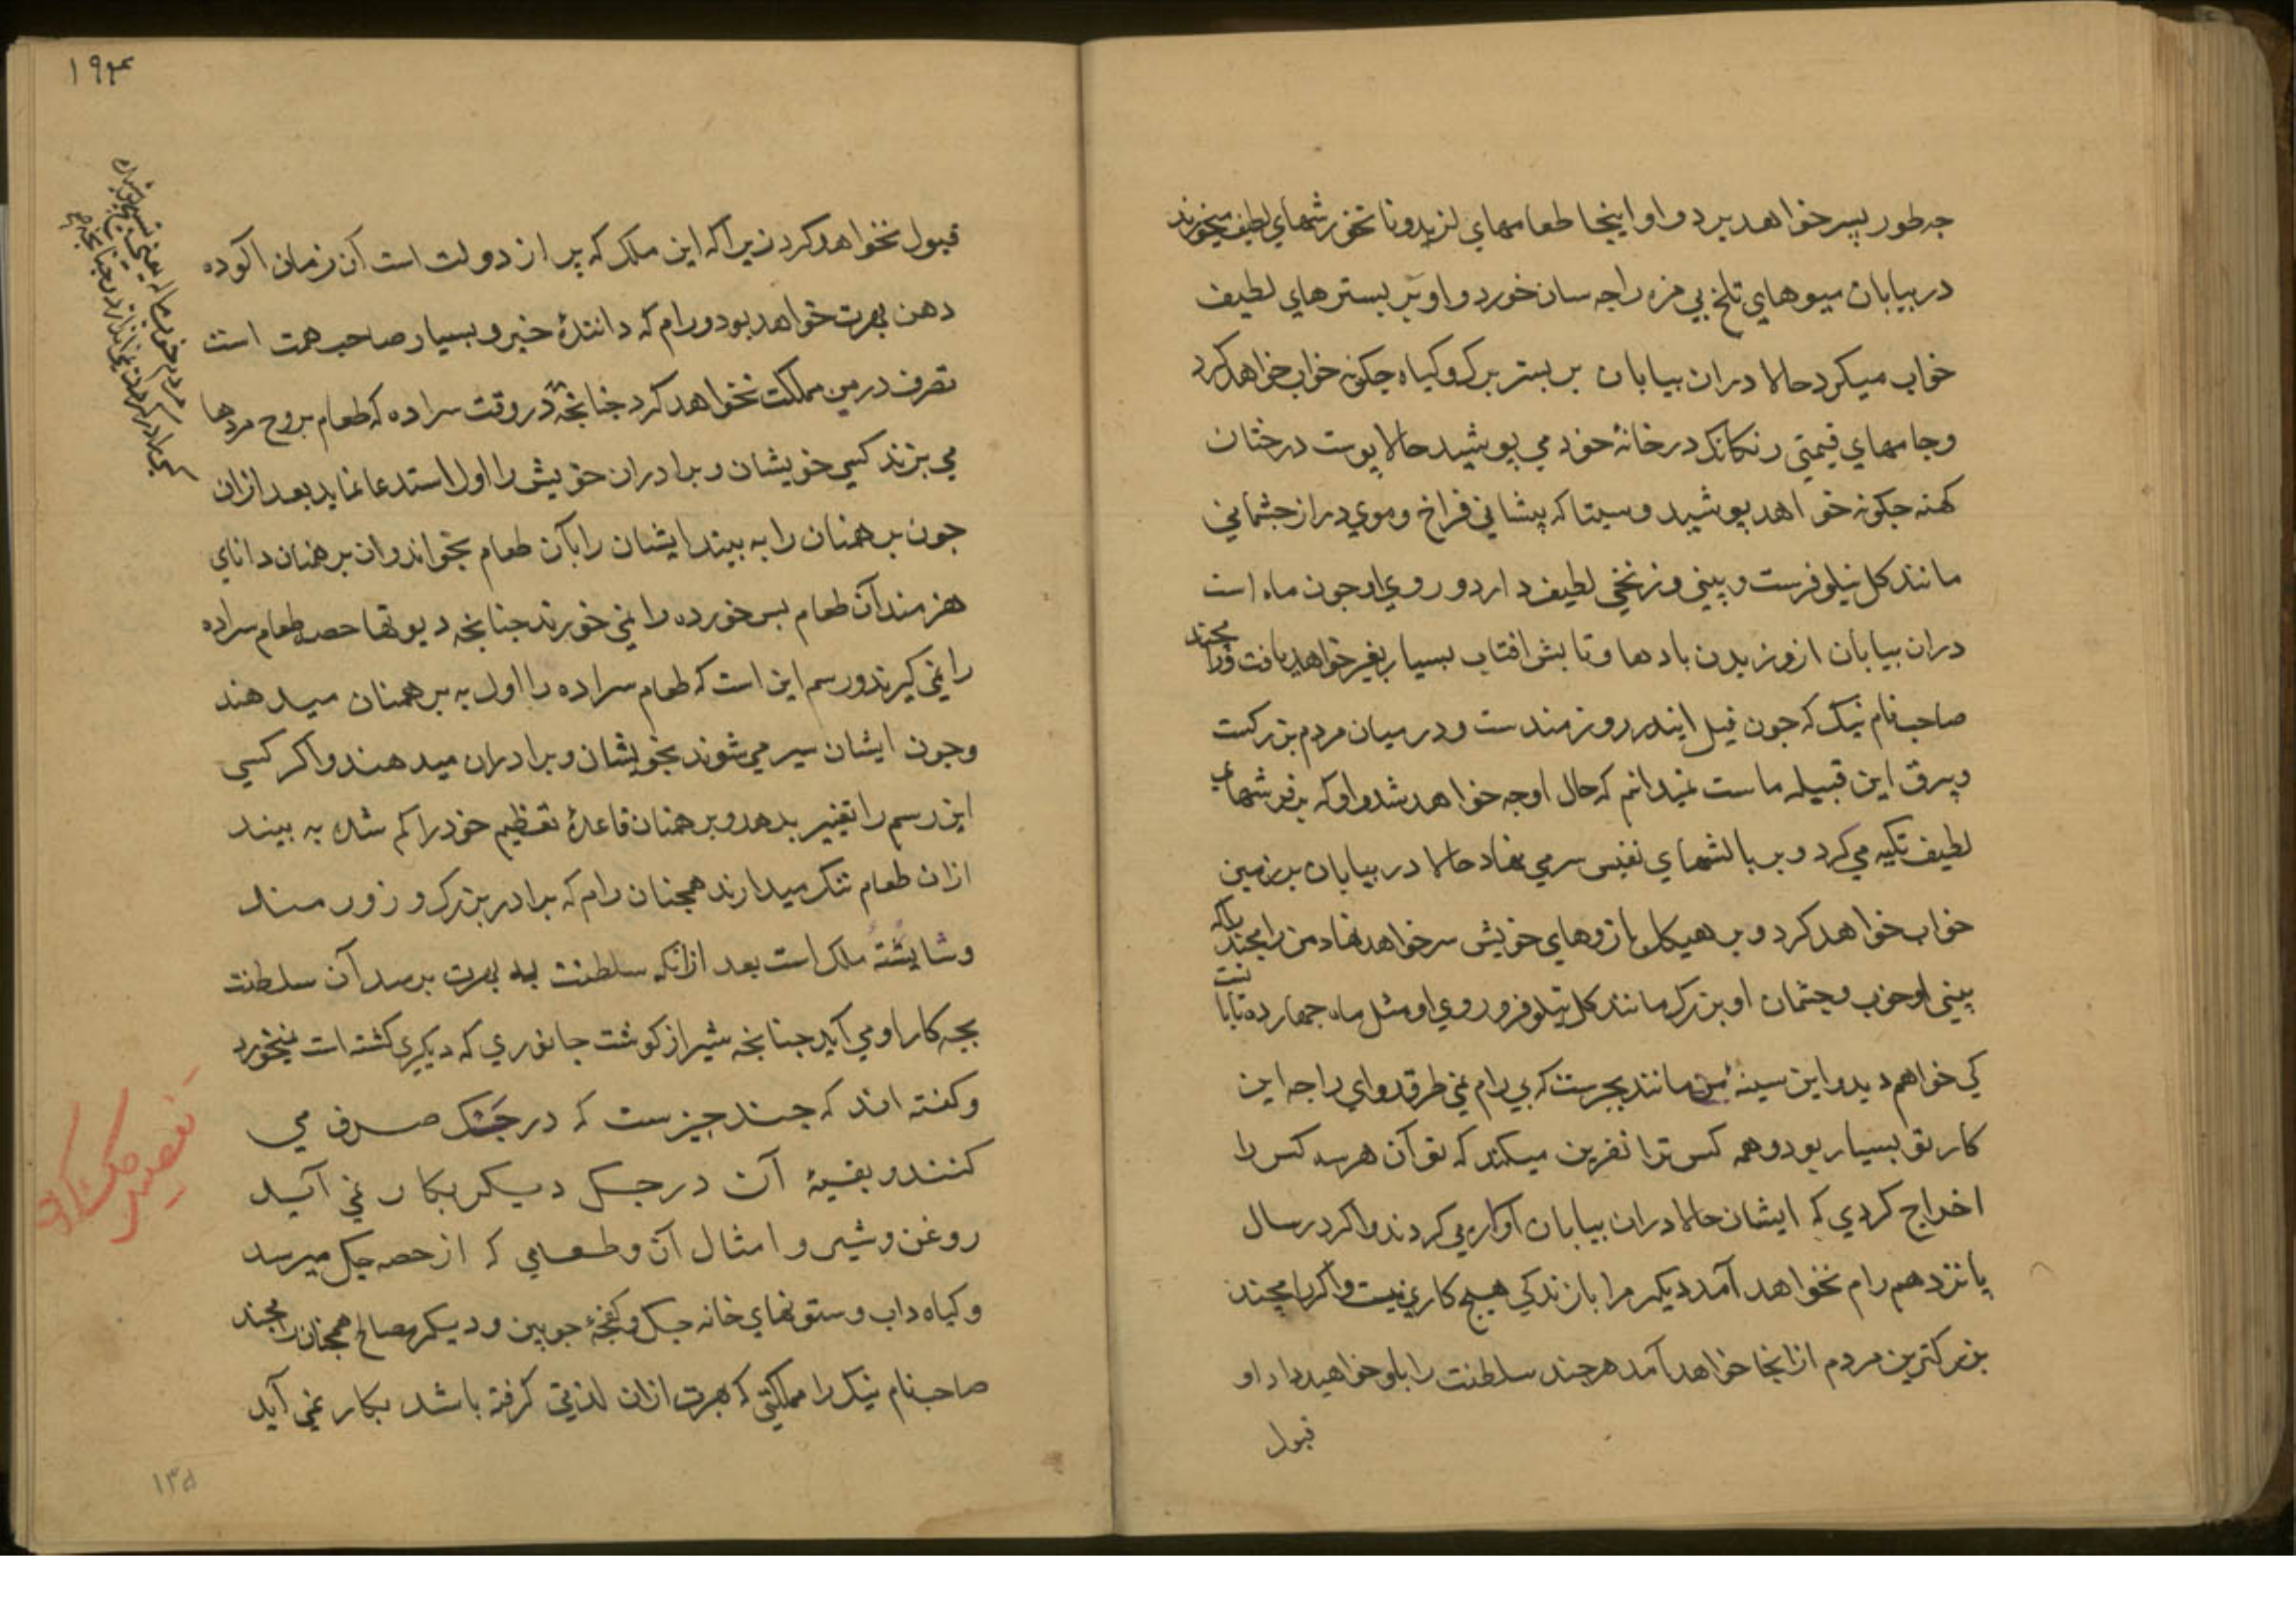 چه طور بسر خواهد برد و او اینجا طعامهای لذیذ و نانخورشهای لطیف میخورند
در بیابان میوهای تلخ بی مزه را چه سان خورد و او بر بسترهای لطیف
خواب میکرد حالا دران بیابان بر بستر برک و کیاه چکونه خواب خواهد کرد
و جامهای قیمتی رنکارنک در خانهٔ خود می پوشید حالا پوست درختان
کهنه چکونه خواهد پوشید و سیتا که پیشانی فراخ و موی دراز چشمانی
مانند کل نیلوفرست و بینی و زنخی لطیف دارد و روی او چون ماه است
دران بیابان از وزیدن بادها و تابش افتاب بسیار تغیر خواهد یافت و رامچند
صاحب نام نیک که چون فیل ایندر روزمندست و در میان مردم بزرکست
و بیرق این قبیله ماست نمیدانم که حال او چه خواهد شد و او که بر فرشهای
لطیف تکیه می کرد و بر بالشهای نفیس سر می نهاد حالا در بیابان بر زمین
خواب خواهد کرد و بر هیکل بازوهای خویش سر خواهد نهاد من رامچند را که
بینی او خوب و چشمان او بزرک مانند کل نیلوفر و روی او مثل ماه چهارده تابانست
کی خواهم دید و این سینهٔ من مانند بجرست که بی رام نمی طرقد وای راجه این
کار تو بسیار بود و همه کس ترا نفرین میکنند که تو آن هر سه کس را
اخراج کردی که ایشان حالا دران بیابان آواره می کردند و اکر در سال
پانزدهم رام نخواهد آمد دیکر مرا با زندکی هیچ کاری نیست و اکر رامچند
بزرکترین مردم ازانجا خواهد آمد هر چند سلطنت را باو خواهید داد او
قبول
۱۹۴
قبول نخواهد کرد زیرا که این ملک که پر از دولت است آن زمان آلوده
دهن بهرت خواهد بود و رام که دانندهٔ خیر و بسیار صاحب همت است
تصرف درین مملکت نخواهد کرد چنانچه در وقت سراده که طعام بروح مردها
می پزند کسی خویشان و برادران خویش را اول استدعا نماید بعد ازان
چون برهمنان را به بیند ایشان را بآن طعام بخواند و ان برهمنان دانای
هنرمند آن طعام پس خورده را نمی خورند چنانچه دیوتها حصه طعام سراده
را نمی کیرند و رسم این است که طعام سراده را اول به برهمنان میدهند
و چون ایشان سیر می شوند بخویشان و برادران میدهند و اکر کسی
این رسم را تغییر بدهد و برهمنان قاعدهٔ تعظیم خود را کم شده به بیند
ازان طعام ننک میدارند همچنان رام که برادر بزرک و زورمند
و شایستهٔ ملک است بعد ازانکه سلطنت به بهرت برسد آن سلطنت
بچه کار او می آید چنانچه شیر از کوشت جانوری که دیکری کشته است نمیخورد
و کفته اند که چند چیزست که در جک صرف می
کنند و بقیهٔ آن در جک دیکر بکار نمی آید
روغن و شیر و امثال آن و طعامی که از حصه جک میرسد
و کیاه داب و ستونهای خانه جک و کفچهٔ چوبین و دیکر مصالح همچنان رامچند
صاحب نام نیک را مملکتی که بهرت ازان لذتی کرفته باشد بکار نمی آید
۱۳۵